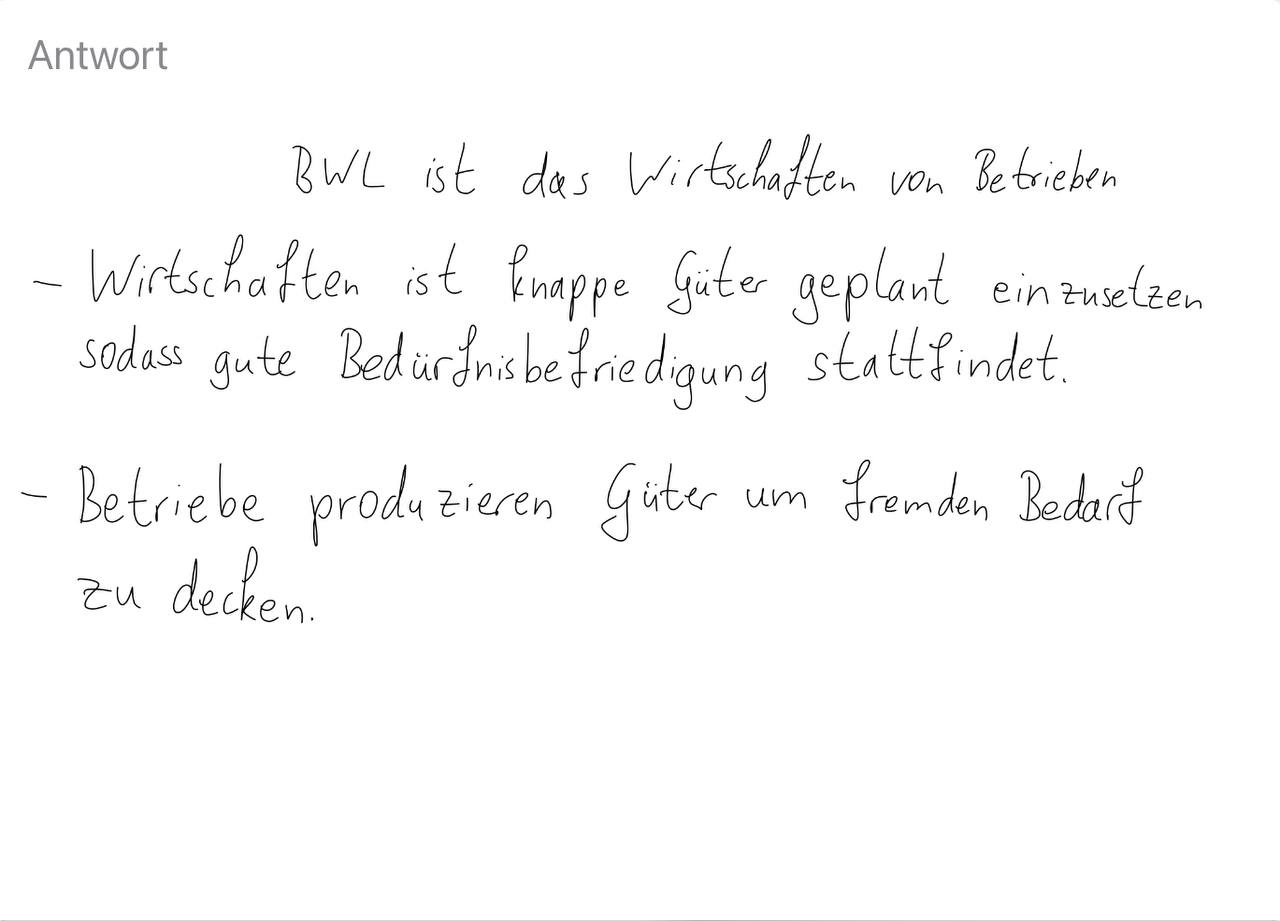 Antwort
BWL ist das Wirtschaften von Betrieben
- Wirtschaften ist knappe Güter geplant einzusetzen
sodass gute Bedürfnisbefriedigung stattfindet.
- Betriebe produzieren Güter um fremden Bedarf
zu decken.